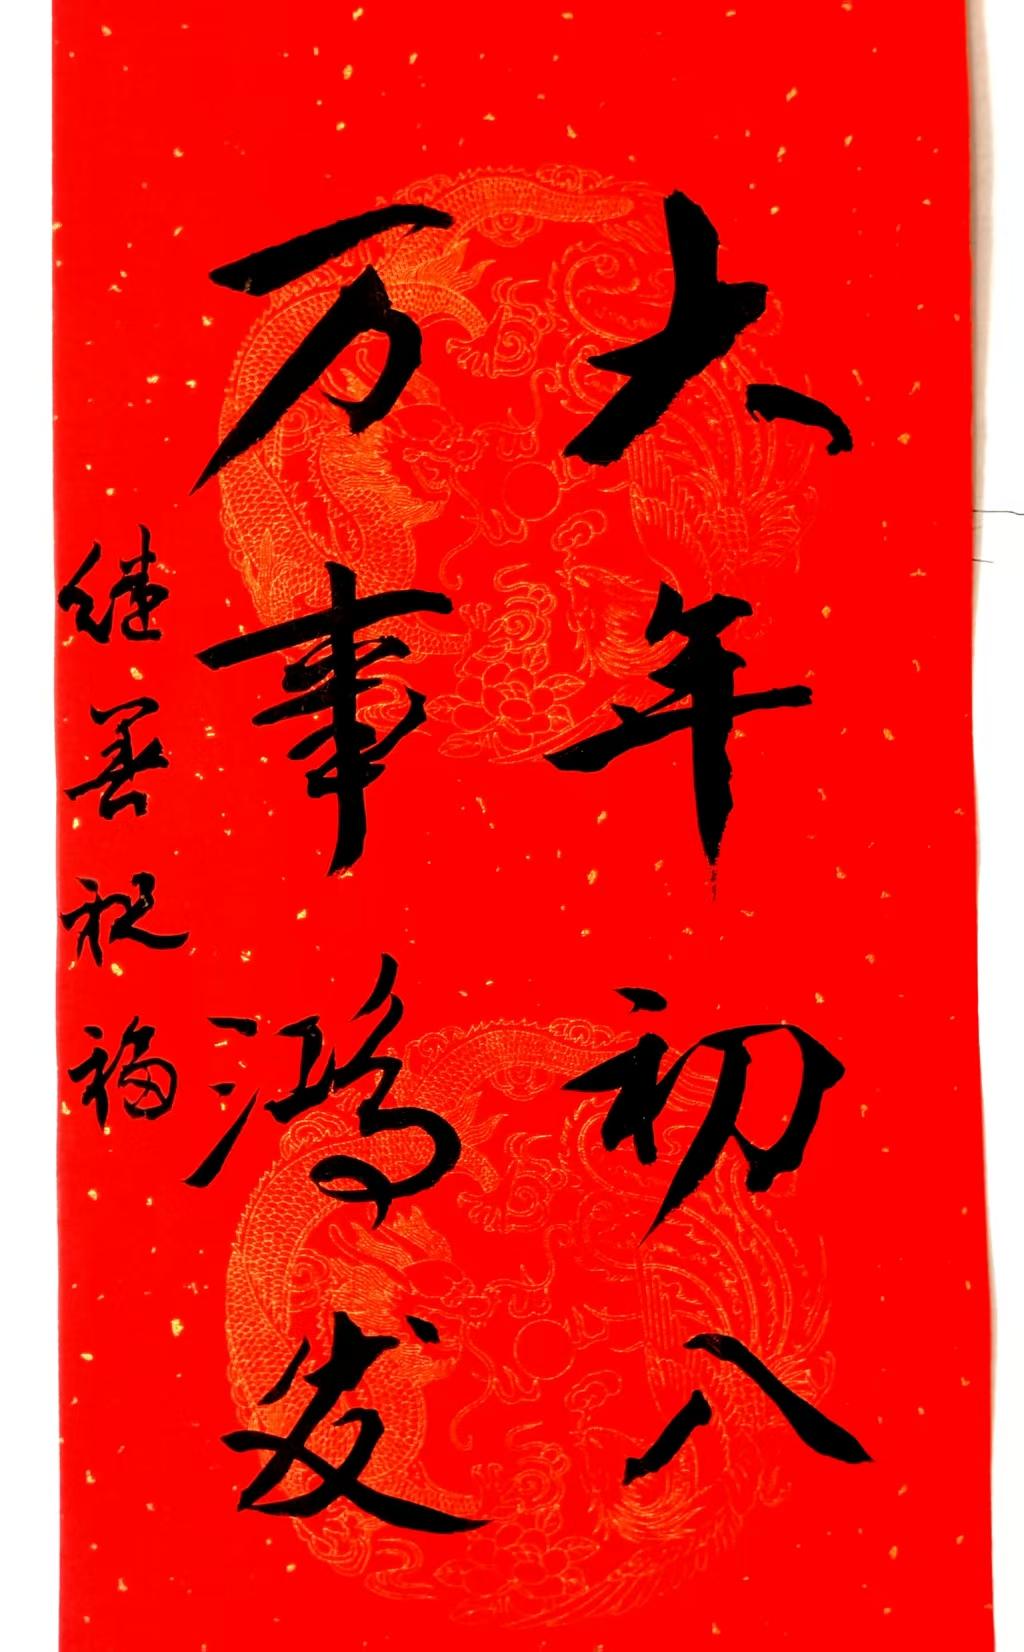 大年初八
万事鸿发
继善祝福